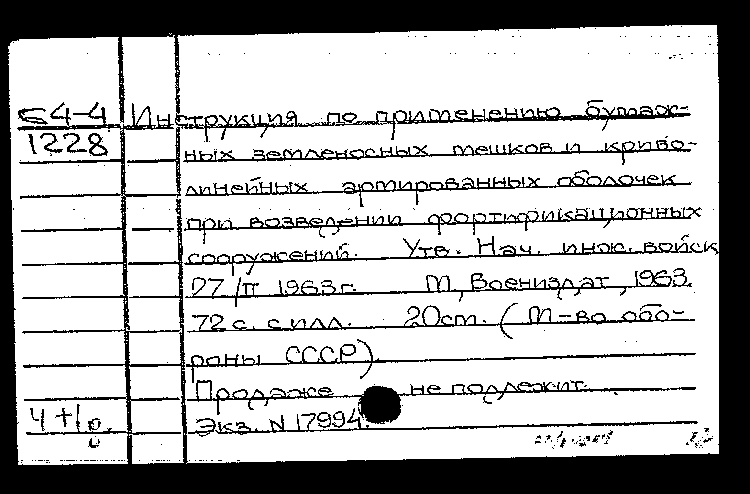 Б4-4 Инструкция по применению бумаж-
1228 ных земленосных мешков и криво-
линейных армированных оболочек
при возведении фортификационных
сооружений. Утв. Нач. инж. войск
27/II 1963г. М, Воениздат, 1963.
72 с. с илл. 20см. (М-во обо-
роны СССР).
Продаже не подлежит.
4 + 1 р. Экз. N 17994.